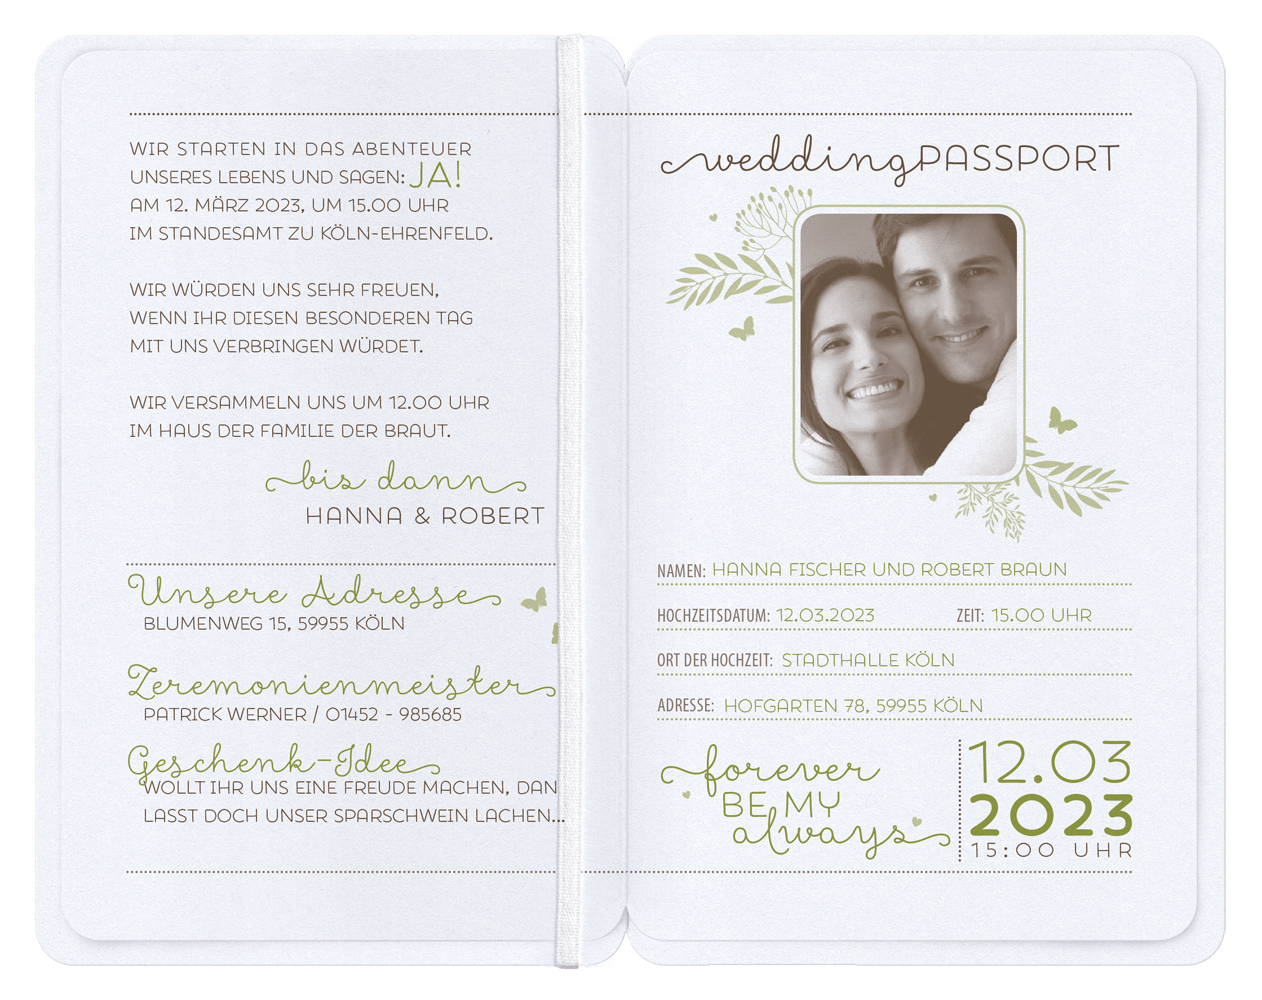 WIR STARTEN IN DAS ABENTEUER
UNSERES LEBENS UND SAGEN: JA!
AM 12. MÄRZ 2023, UM 15.00 UHR
IM STANDESAMT ZU KÖLN-EHRENFELD.
WIR WÜRDEN UNS SEHR FREUEN,
WENN IHR DIESEN BESONDEREN TAG
MIT UNS VERBRINGEN WÜRDET.
WIR VERSAMMELN UNS UM 12.00 UHR
IM HAUS DER FAMILIE DER BRAUT.
bis dann
HANNA & ROBERT
Unsere Adresse
BLUMENWEG 15, 59955 KÖLN
Zeremonienmeister
PATRICK WERNER / 01452 - 985685
Geschenk-Idee
WOLLT IHR UNS EINE FREUDE MACHEN, DAN
LASST DOCH UNSER SPARSCHWEIN LACHEN...
wedding PASSPORT
NAMEN: HANNA FISCHER UND ROBERT BRAUN
HOCHZEITSDATUM: 12.03.2023 ZEIT: 15.00 UHR
ORT DER HOCHZEIT: STADTHALLE KÖLN
ADRESSE: HOFGARTEN 78, 59955 KÖLN
forever
BE MY
always
12.03
2023
15:00 UHR